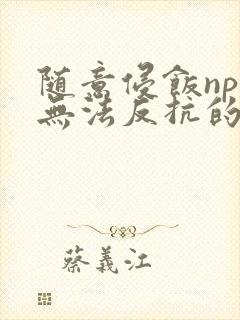 随意侵飯np
無法反抗的
蔡義江